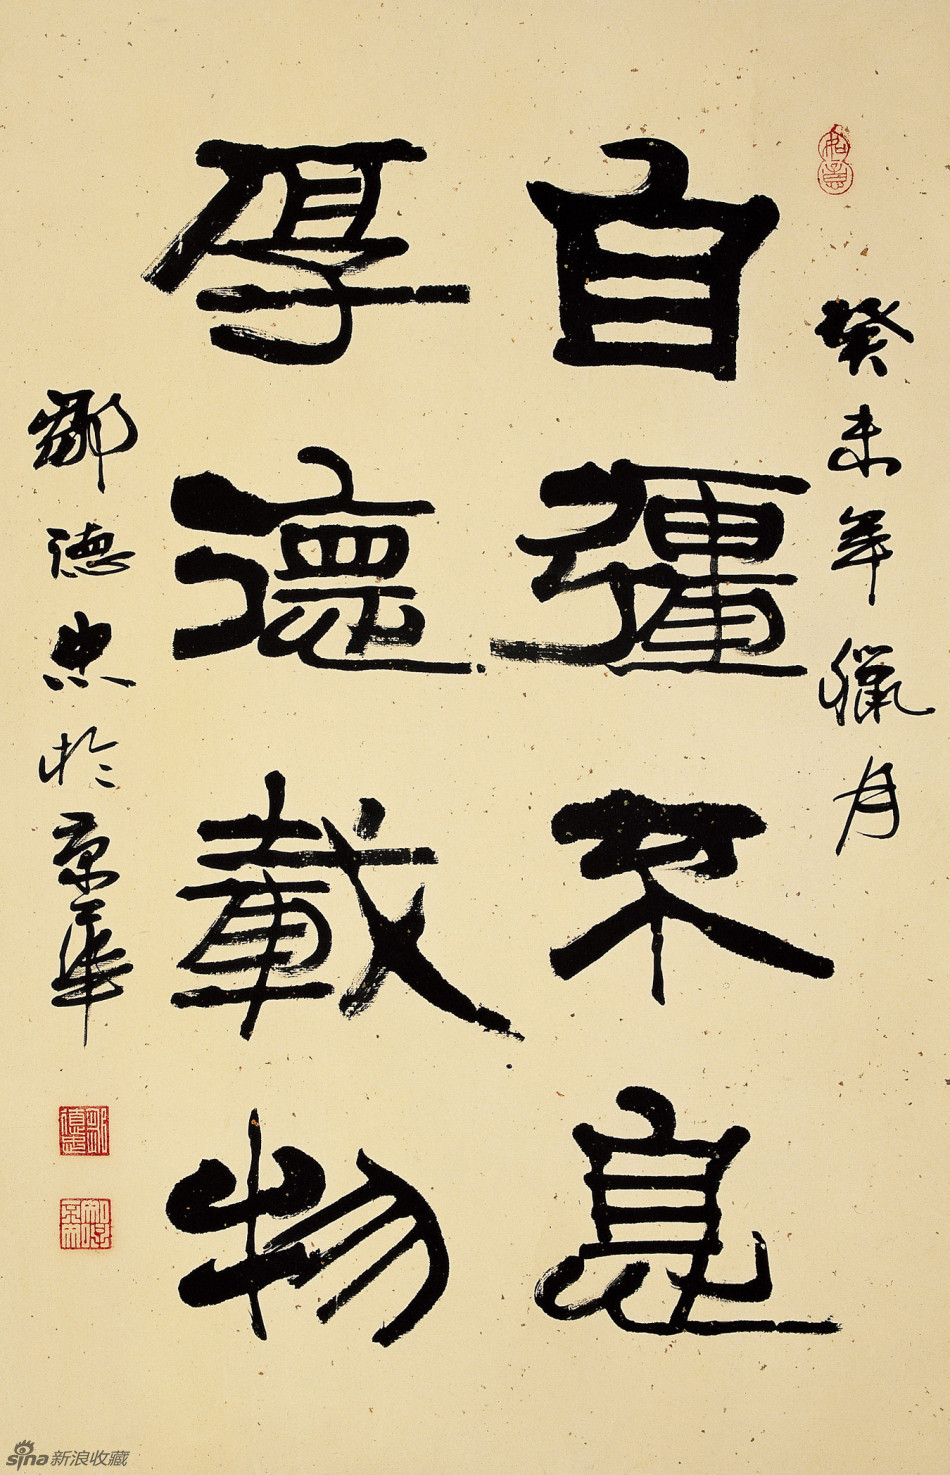 如意
癸未年臘月
自彊不息
厚德載物
鄒德忠於京華
鄒德忠
sina新浪收藏